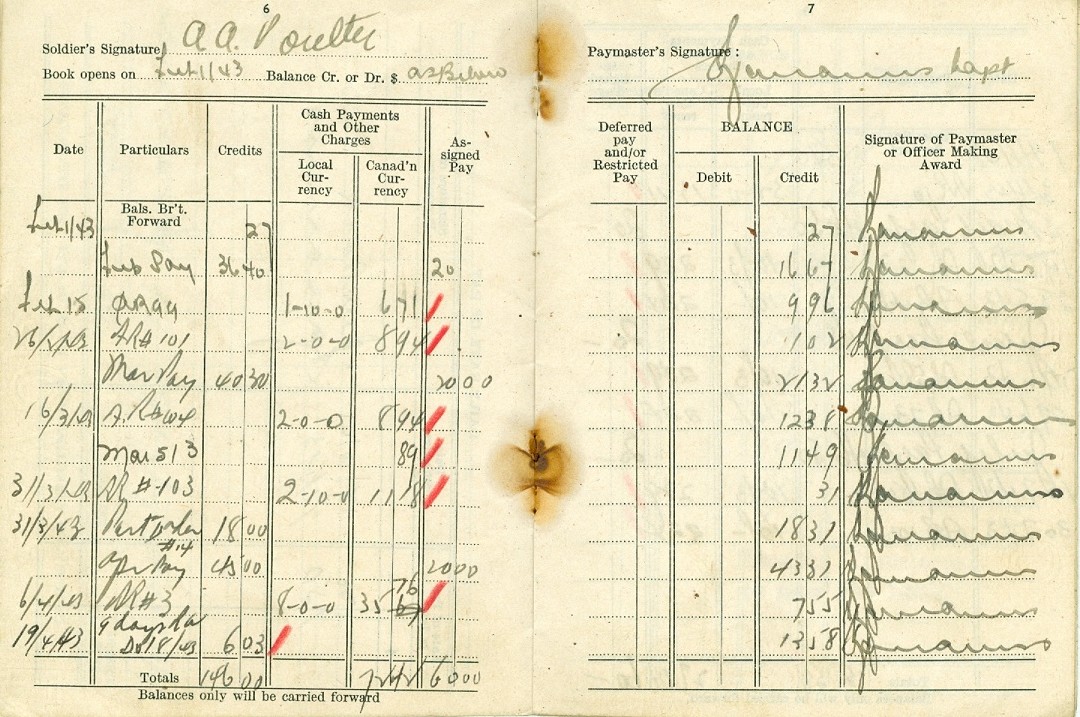 6
Soldier's Signature A A. Poulter
Book opens on Feb 1/43 Balance Cr. or Dr. $ as Below
Date Particulars Credits Cash Payments and Other Charges As-signed Pay
Local Cur-rency Canad'n Cur-rency
Feb 1/43 Bals. Br't. Forward 27
Feb Pay 36 40 20
Feb 15 AR 99 1-10-0 6 71
26/2/43 AR# 101 2-0-0 8 94
Mar Pay 40 30 20 00
16/3/43 A.R# 2-0-0 8 94
Mar 5/3 89
31/3/43 AR #103 2-10-0 11 18
31/3/43 Part Order #14 18 00
Apr Pay 45 00 20 00
6/4/43 AR#3 8-0-0 35 76
19/4/43 9 days 6 03
Totals 146 00 72 42 60 00
Balances only will be carried forward
7
Paymaster's Signature : Capt
Deferred pay and/or Restricted Pay BALANCE Signature of Paymaster or Officer Making Award
Debit Credit
27
16 67
9 96
1 02
21 32
12 38
11 49
31
18 31
43 31
7 55
13 58